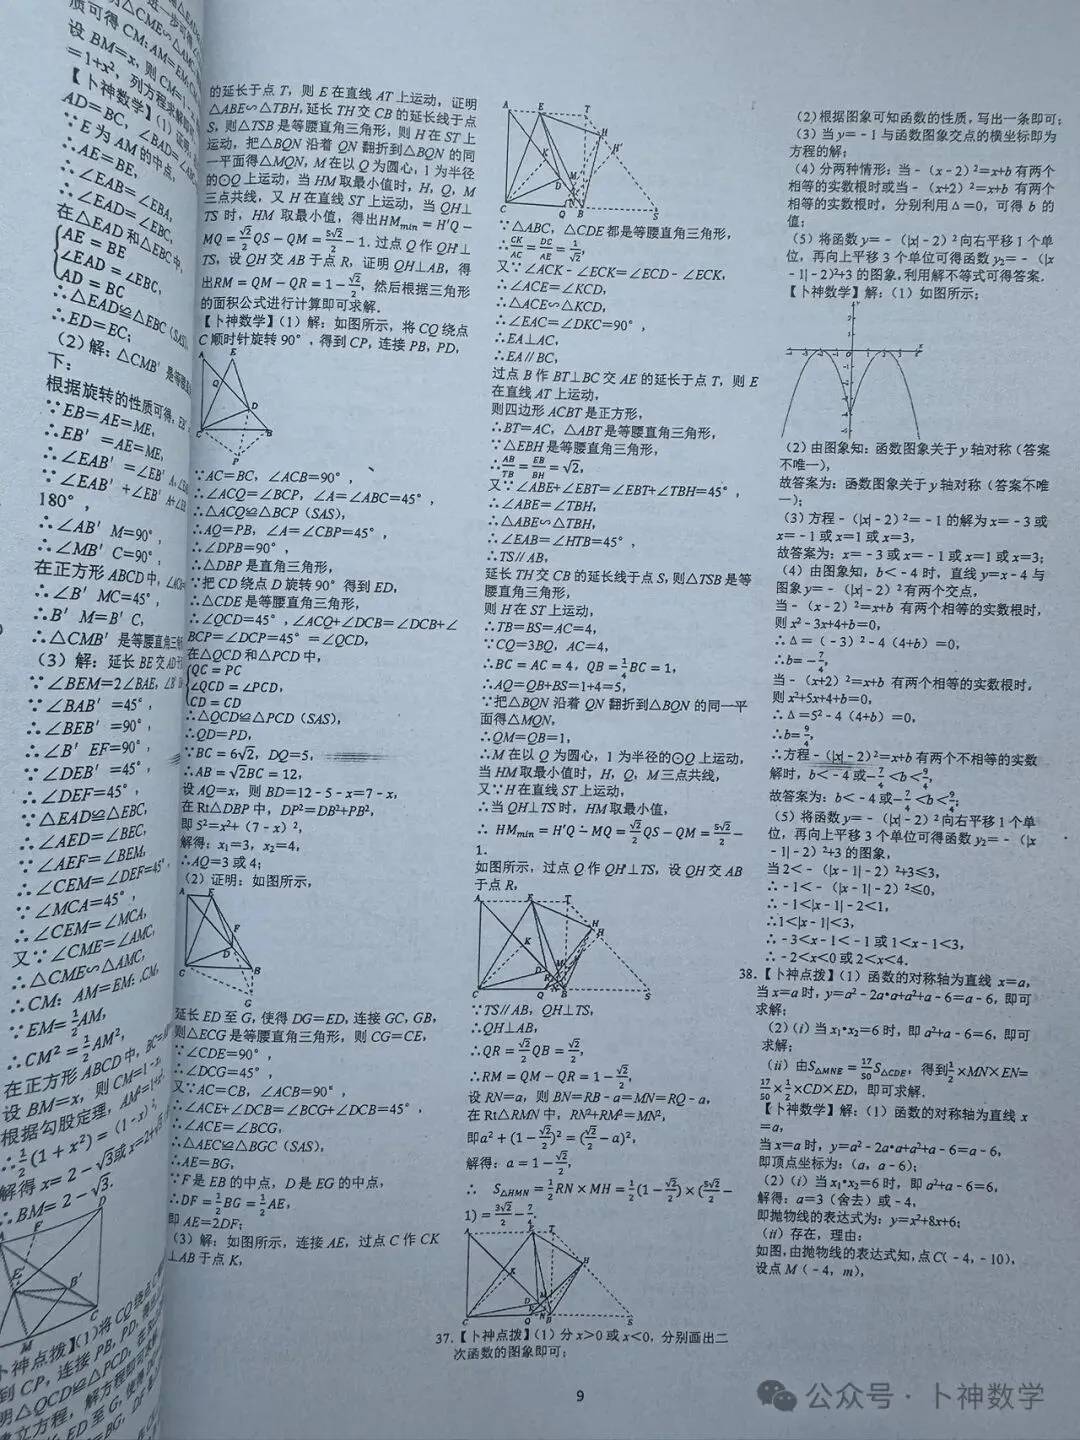 质可得 CM:AM=EM:CM,
设 BM=x,则 CM=1-
=1+x²,列方程求解即可
【卜神数学】(1)证明:
AD=BC,∠BAD=∠ABC
∵E 为 AM 的中点,
∴AE=BE,
∴∠EAB=∠EBA,
∴∠EAD=∠EBC,
在△EAD 和△EBC 中,
AE = BE
∠EAD = ∠EBC,
AD = BC
∴△EAD≌△EBC(SAS),
∴ED=EC;
(2)解:△CMB′是等腰直
下:
根据旋转的性质可得,EB′
∵EB=AE=ME,
∴EB′=AE=ME,
∴∠EAB′=∠EB′A,
∵∠EAB′+∠EB′A+
180°,
∴∠AB′M=90°,
∴∠MB′C=90°,
在正方形 ABCD 中,
∴∠B′MC=45°,
∴B′M=B′C,
∴△CMB′是等腰直角三角
(3)解:延长 BE 交 AD 于
∵∠BEM=2∠BAE,
∵∠BAB′=45°,
∴∠BEB′=90°,
∴∠B′EF=90°,
∵∠DEB′=45°,
∴∠DEF=45°,
∵△EAD≌△EBC,
∴∠AED=∠BEC,
∵∠AEF=∠BEM,
∴∠CEM=∠DEF=45°,
∵∠MCA=45°,
∴∠CEM=∠MCA,
又∵∠CME=∠AMC,
∴△CME∽△AMC,
∴CM:AM=EM:CM,
∵EM=1/2AM,
∴CM²=1/2AM²,
在正方形 ABCD 中,
设 BM=x,则 CM=1-x,
根据勾股定理,AM²=1+x²,
∴1/2(1+x²)=(1-x)²,
解得 x=2-√3或 x=2+√3
∴BM=2-√3.
卜神点拨】(1)将 CQ 绕点 C
到 CP,连接 PB,PD,
明△QCD≌△PCD,
建立方程,解方程即可求
的延长于点 T,则 E 在直线 AT 上运动,证明
△ABE∽△TBH,延长 TH 交 CB 的延长线于点
S,则△TSB 是等腰直角三角形,则 H 在 ST 上
运动,把△BQN 沿着 QN 翻折到△BQN 的同
一平面得△MQN,M 在以 Q 为圆心,1 为半径
的⊙Q 上运动,当 HM 取最小值时,H,Q,M
三点共线,又 H 在直线 ST 上运动,当 QH⊥
TS 时,HM 取最小值,得出HMmin = H′Q -
MQ = √2/2QS - QM = 5√2/2 - 1. 过点 Q 作 QH⊥
TS,设 QH 交 AB 于点 R,证明 QH⊥AB,得
出RM = QM - QR = 1 - √2/2,然后根据三角形
的面积公式进行计算即可求解.
【卜神数学】(1)解:如图所示,将 CQ 绕点
C 顺时针旋转 90°,得到 CP,连接 PB,PD,
∵AC=BC,∠ACB=90°,
∴∠ACQ=∠BCP,∠A=∠ABC=45°,
∴△ACQ≌△BCP(SAS),
∴AQ=PB,∠A=∠CBP=45°,
∴∠DPB=90°,
∴△DBP 是直角三角形,
∵把 CD 绕点 D 旋转 90°得到 ED,
∴△CDE 是等腰直角三角形,
∴∠QCD=45°,∠ACQ+∠DCB=∠DCB+∠
BCP=∠DCP=45°=∠QCD,
在△QCD 和△PCD 中,
QC = PC
∠QCD = ∠PCD,
CD = CD
∴△QCD≌△PCD(SAS),
∴QD=PD,
∵BC=6√2,DQ=5,
∴AB=√2BC=12,
设 AQ=x,则 BD=12-5-x=7-x,
在 Rt△DBP 中,DP²=DB²+PB²,
即 5²=x²+(7-x)²,
解得:x₁=3,x₂=4,
∴AQ=3 或 4;
(2)证明:如图所示,
延长 ED 至 G,使得 DG=ED,连接 GC,GB,
则△ECG 是等腰直角三角形,则 CG=CE,
∵∠CDE=90°,
∴∠DCG=45°,
又∵AC=CB,∠ACB=90°,
∴∠ACE+∠DCB=∠BCG+∠DCB=45°,
∴∠ACE=∠BCG,
∴△AEC≌△BGC(SAS),
∴AE=BG,
∵F 是 EB 的中点,D 是 EG 的中点,
∴DF = 1/2BG = 1/2AE,
即 AE=2DF;
(3)解:如图所示,连接 AE,过点 C 作 CK
⊥AB 于点 K,
∵△ABC,△CDE 都是等腰直角三角形,
∴CK/AC = DC/AE = 1/√2,
又∵∠ACK-∠ECK=∠ECD-∠ECK,
∴∠ACE=∠KCD,
∴△ACE∽△KCD,
∴∠EAC=∠DKC=90°,
∴EA⊥AC,
∴EA∥BC,
过点 B 作 BT⊥BC 交 AE 的延长于点 T,则 E
在直线 AT 上运动,
则四边形 ACBT 是正方形,
∴BT=AC,△ABT 是等腰直角三角形,
∵△EBH 是等腰直角三角形,
∴AB/TB = EB/BH = √2,
又∵∠ABE+∠EBT=∠EBT+∠TBH=45°,
∴∠ABE=∠TBH,
∴△ABE∽△TBH,
∴∠EAB=∠HTB=45°,
∴TS∥AB,
延长 TH 交 CB 的延长线于点 S,则△TSB 是等
腰直角三角形,
则 H 在 ST 上运动,
∴TB=BS=AC=4,
∵CQ=3BQ,AC=4,
∴BC = AC = 4,QB = 1/4BC = 1,
∴AQ=QB+BS=1+4=5,
∵把△BQN 沿着 QN 翻折到△BQN 的同一平
面得△MQN,
∴QM=QB=1,
∴M 在以 Q 为圆心,1 为半径的⊙Q 上运动,
当 HM 取最小值时,H,Q,M 三点共线,
又∵H 在直线 ST 上运动,
∴当 QH⊥TS 时,HM 取最小值,
∴HMmin = H′Q - MQ = √2/2QS - QM = 5√2/2 -
1.
如图所示,过点 Q 作 QH⊥TS,设 QH 交 AB
于点 R,
∵TS∥AB,QH⊥TS,
∴QH⊥AB,
∴QR = √2/2QB = √2/2,
∴RM = QM - QR = 1 - √2/2,
设 RN=a,则 BN=RB-a=MN=RQ-a,
在 Rt△RMN 中,RN²+RM²=MN²,
即a² + (1 - √2/2)² = (√2/2 - a)²,
解得:a = 1 - √2/2,
∴ S△HMN = 1/2RN × MH = 1/2(1 - √2/2) × (5√2/2 -
1) = 3√2/2 - 7/4.
37.【卜神点拨】(1)分 x>0 或 x<0,分别画出二
次函数的图象即可;
(2)根据图象可知函数的性质,写出一条即可;
(3)当 y=-1 与函数图象交点的横坐标即为
方程的解;
(4)分两种情形:当-(x-2)²=x+b 有两个
相等的实数根时或当-(x+2)²=x+b 有两个
相等的实数根时,分别利用Δ=0,可得 b 的
值;
(5)将函数 y=-(|x|-2)²向右平移 1 个单
位,再向上平移 3 个单位可得函数 y₂=-(|x
-1|-2)²+3 的图象,利用解不等式可得答案.
【卜神数学】解:(1)如图所示;
(2)由图象知:函数图象关于 y 轴对称(答案
不唯一),
故答案为:函数图象关于 y 轴对称(答案不唯
一);
(3)方程-(|x|-2)²=-1 的解为 x=-3 或
x=-1 或 x=1 或 x=3,
故答案为:x=-3 或 x=-1 或 x=1 或 x=3;
(4)由图象知,b<-4 时,直线 y=x-4 与
图象 y=-(|x|-2)²有两个交点,
当-(x-2)²=x+b 有两个相等的实数根时,
则 x²-3x+4+b=0,
∴Δ=(-3)²-4(4+b)=0,
∴b=-7/4,
当-(x+2)²=x+b 有两个相等的实数根时,
则 x²+5x+4+b=0,
∴Δ=5²-4(4+b)=0,
∴b=9/4,
∴方程-(|x|-2)²=x+b 有两个不相等的实数
解时,b<-4 或-7/4<b<9/4,
故答案为:b<-4 或-7/4<b<9/4;
(5)将函数 y=-(|x|-2)²向右平移 1 个单
位,再向上平移 3 个单位可得函数 y₂=-(|x
-1|-2)²+3 的图象,
当 2<-(|x-1|-2)²+3≤3,
∴-1<-(|x-1|-2)²≤0,
∴-1<|x-1|-2<1,
∴1<|x-1|<3,
∴-3<x-1<-1 或 1<x-1<3,
∴-2<x<0 或 2<x<4.
38.【卜神点拨】(1)函数的对称轴为直线 x=a,
当 x=a 时,y=a²-2a•a+a²+a-6=a-6,即可
求解;
(2)(i)当 x₁•x₂=6 时,即 a²+a-6=6,即可
求解;
(ii)由S△MNE = 17/50S△CDE,得到1/2×MN×EN=
17/50×1/2×CD×ED,即可求解.
【卜神数学】解:(1)函数的对称轴为直线 x
=a,
当 x=a 时,y=a²-2a•a+a²+a-6=a-6,
即顶点坐标为:(a,a-6);
(2)(i)当 x₁•x₂=6 时,即 a²+a-6=6,
解得:a=3(舍去)或-4,
即抛物线的表达式为:y=x²+8x+6;
(ii)存在,理由:
如图,由抛物线的表达式知,点 C(-4,-10),
设点 M(-4,m),
9
公众号·卜神数学